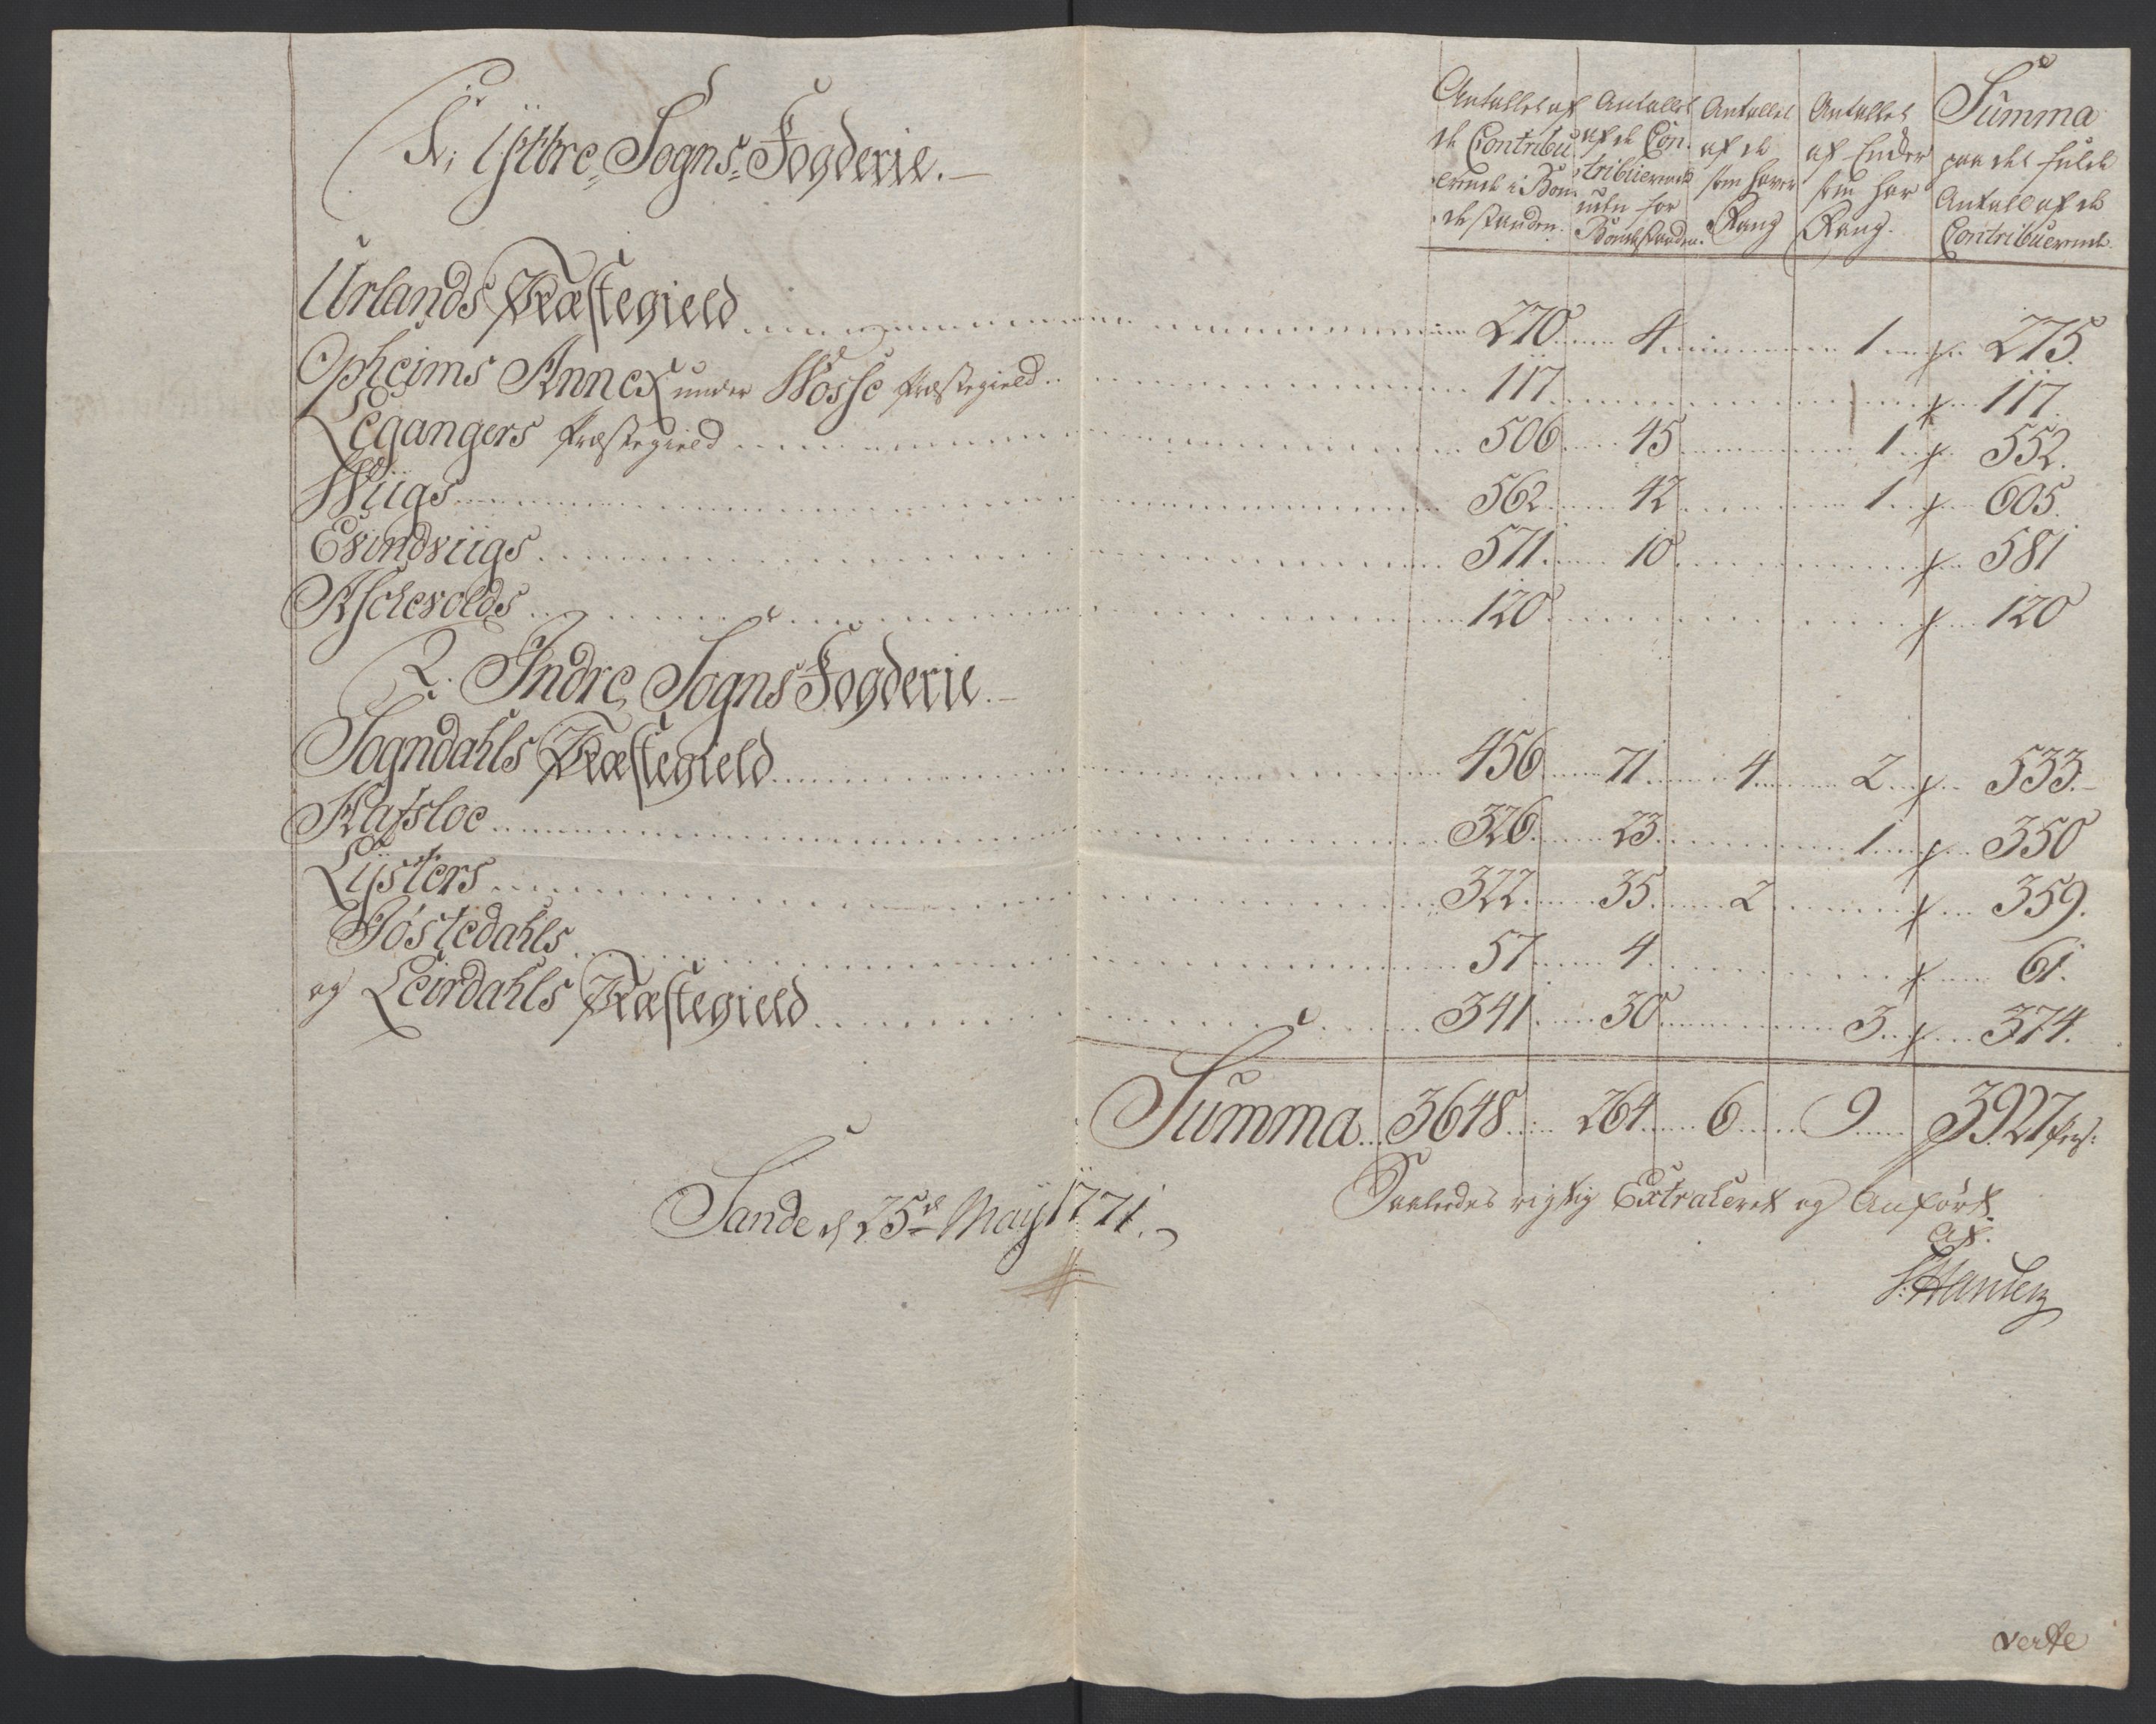 Antallet af de Contribuerende i Bondestanden. | Antallet af de Contribuerende uden for Bondestanden. | Antallet af de som haver Rang | Antallet af Enker som har Rang. | Summa paa det fulde Antall af de Contribuerende.
1. Ÿttre Sogns Fogderie.
Urlands Præstegield 270 4 1 275.
Opheims Annex under Wosse Præstegield 117 117.
Legangers Præstegield 506 45 1 552.
Wiigs 562 42 1 605.
Evindviigs 571 10 581
Aschevolds 120 120
2. Indre Sogns Fogderie.
Sogndahls Præstegield 456 71 4 2 533.
Hafsloe 326 23 1 350
Lÿsters 322 35 2 359.
Jostedahls 57 4 61.
og Leirdahls Præstegield 341 30 3 374.
Summa 3648 264 6 9 3927 Pers:
Saaledes rigtig Extraheret og Anført
af.
Sande d 25de Maÿ 1771.
verte